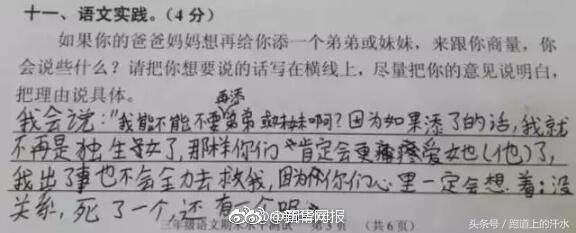 十一、语文实践。(4分)
如果你的爸爸妈妈想再给你添一个弟弟或妹妹，来跟你商量，你
会说些什么？请把你想要说的话写在横线上，尽量把你的意见说明白，
把理由说具体。
再添
我会说："我能不能不要弟弟或妹妹啊？因为如果添了的话，我就
不再是独生女了，那样你们肯定会更疼爱她(他)了，
我出了事也不会全力去救我，因为你们心里一定会想着：没
关系，死了一个，还有一个呢
@新华网报
三年级语文期末水平测试 第5页 (共6页)
头条号／跑道上的汗水